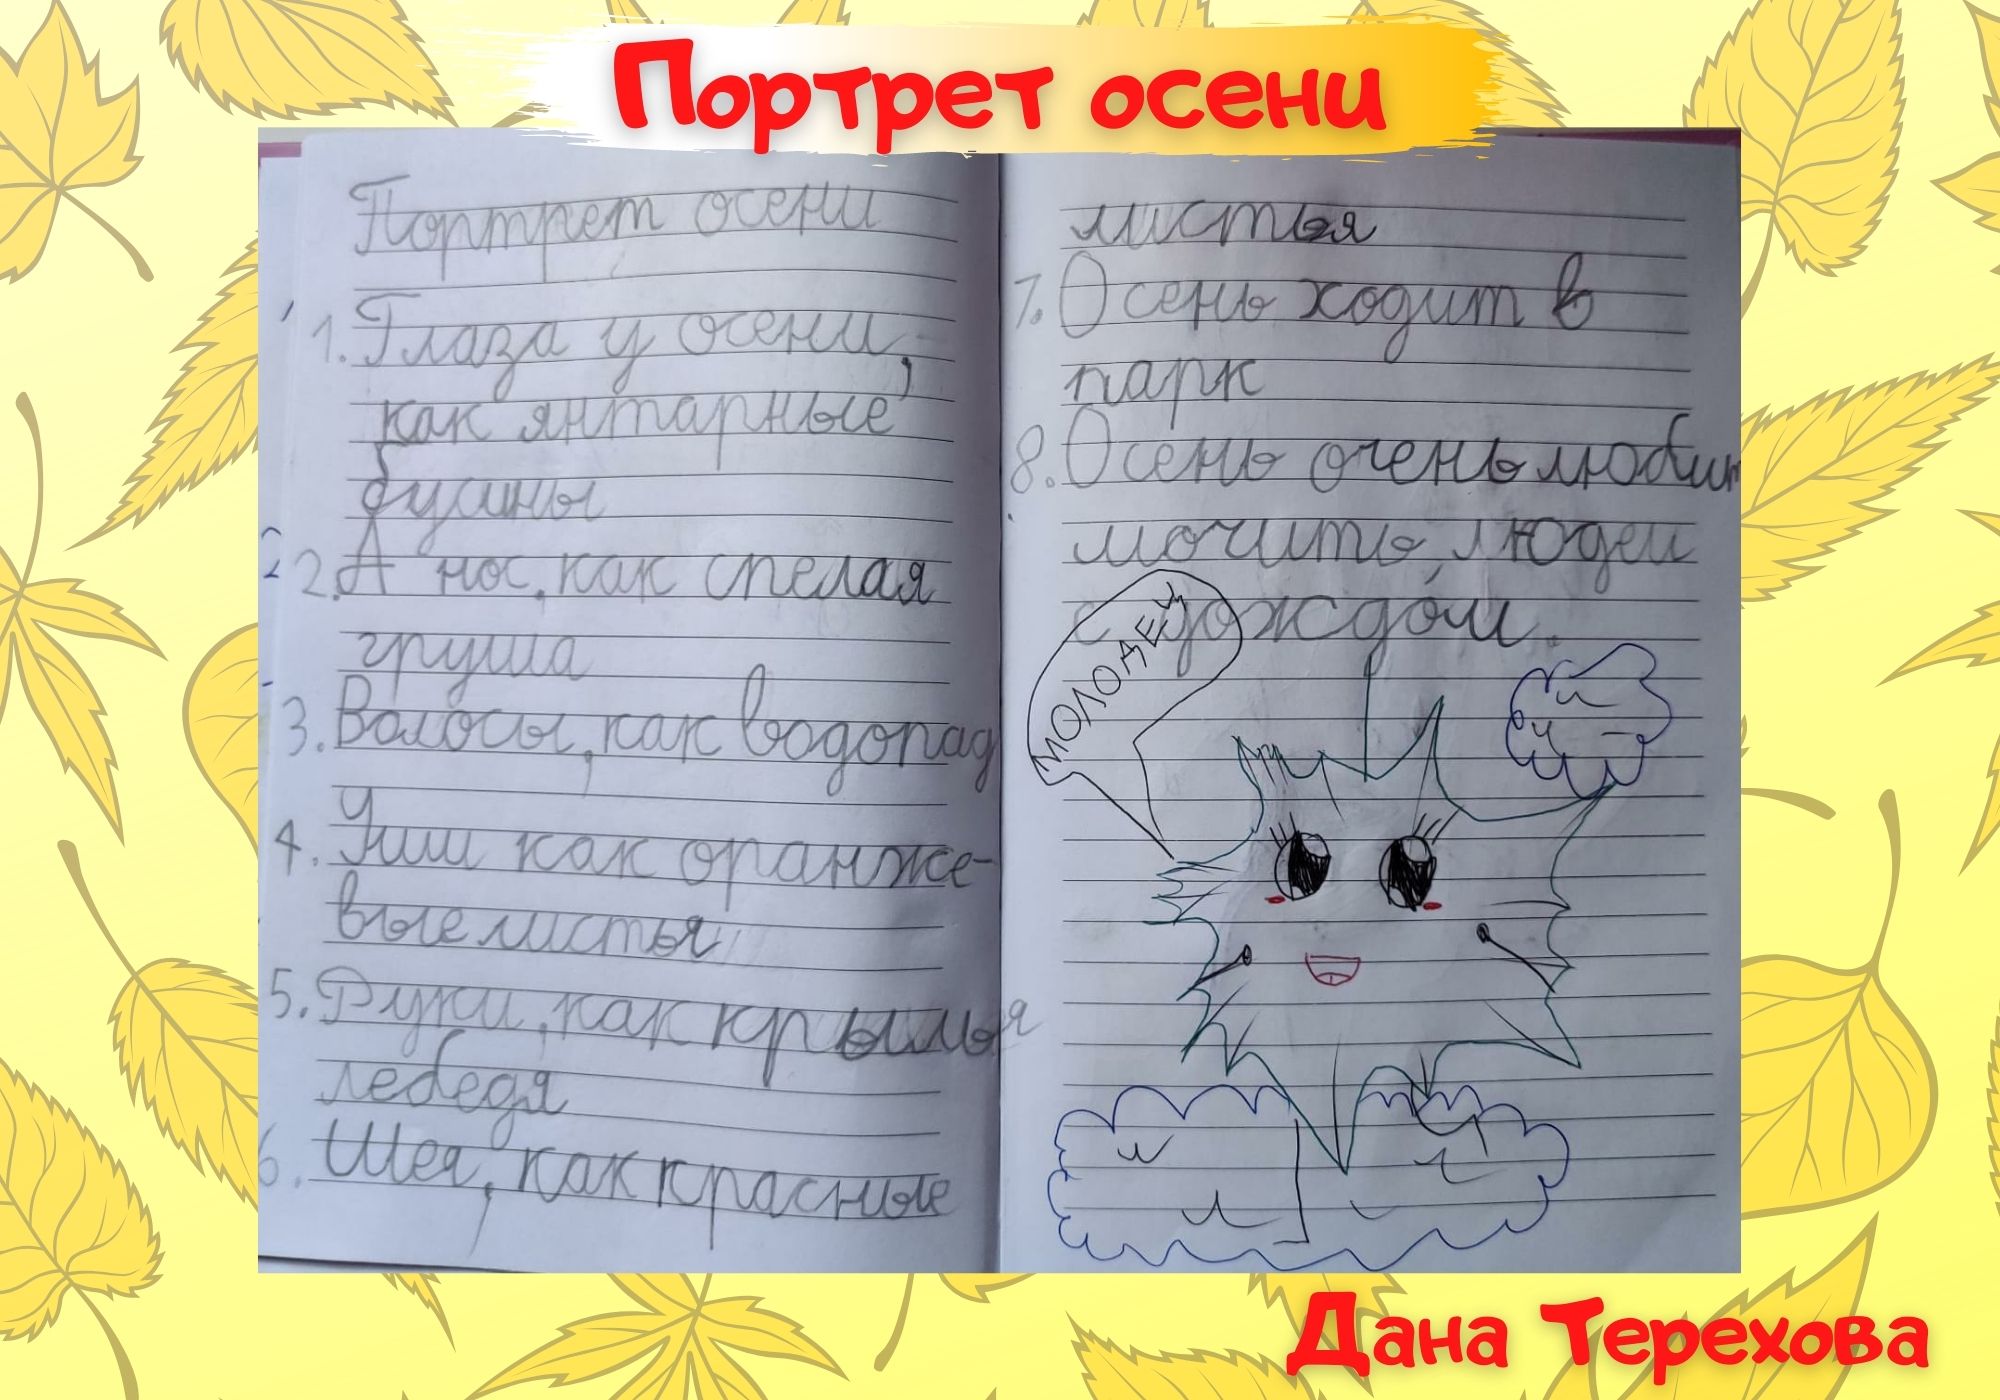 Портрет осени
Портрет осени
1. Глаза у осени,
как янтарные
бусины
2. А нос, как спелая
груша
3. Волосы, как водопад
4. Уши как оранже-
вые листья
5. Руки, как крылья
лебедя
6. Шея, как красные
листья
7. Осень ходит в
парк
8. Осень очень любит
мочить людей
с дождём.
МОЛОДЕЦ
Дана Терехова